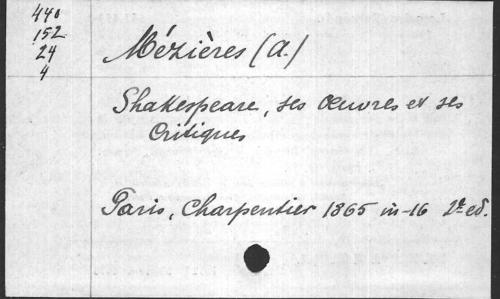 440
152
24
4
Mézières (A.)
Shakespeare, ses Œuvres et ses
Critiques
Paris, Charpentier 1865 in-16 2e ed.